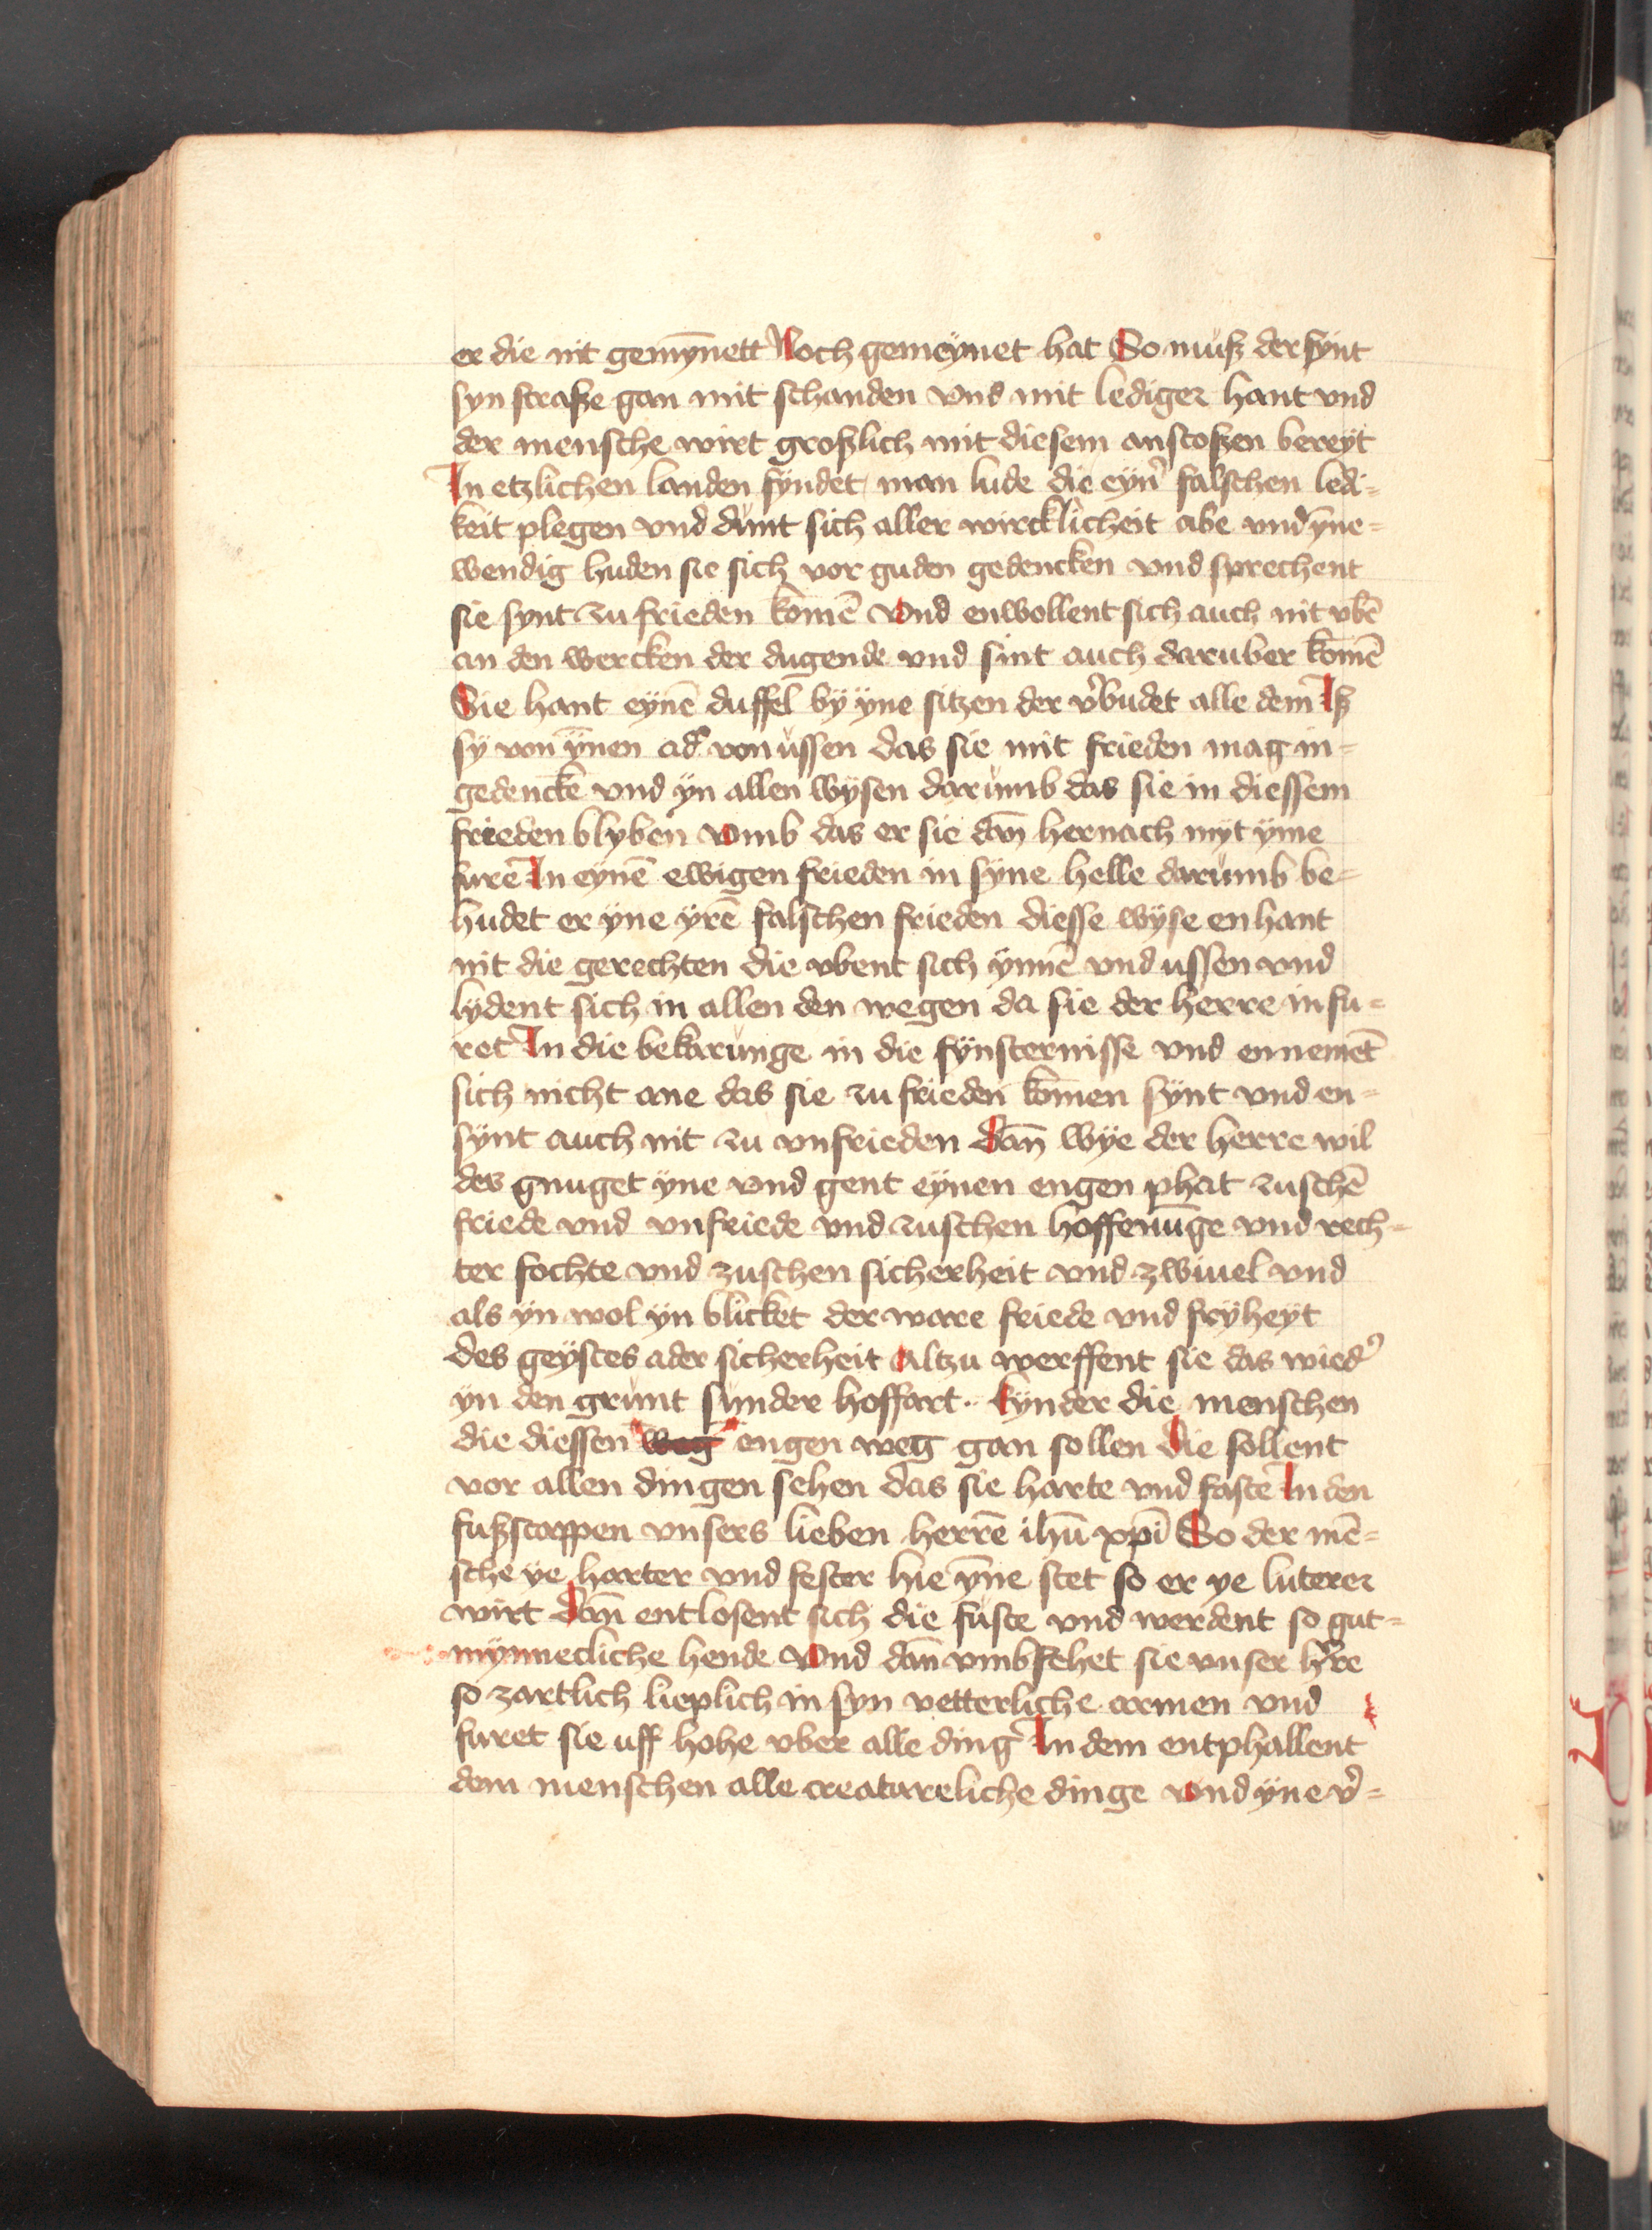 er die nit gemȳnett Noch gemeÿnet hat So muß der fÿnt
syn straße gan mit schanden vnd mit lediger hant vnd
der mensche wirt großlich mit diesem anstoßen bereÿt
In etzlichen landen fÿndet man lude die eyn᾽ falschen ledi⸗
keit plegen vnd dünt sich aller wircklicheit abe vnd ÿne⸗
wendig huden sie sich vor guden gedencken vnd sprechent
sie synt zu frieden komē Vnd enwollent sich auch nit vbē
an den wercken der dugende vnd sint auch daruber komē
Sie hant eÿnē duffel bÿ ÿne sitzen der v᾽budet alle dem Iß
sÿ von ÿnen ad᾽ von ussen das sie mit frieden mag in⸗
gedenckē vnd ÿn allen wÿsen darümb das sie in diessem
frieden blyben vmb das er sie dan̄ hernach mÿt ÿme
furē In eÿnē ewigen frieden in sÿne helle darümb be⸗
hudet er ÿne ÿrē falschen frieden diesse wÿse enhant
nit die gerechten die vbent sich ÿnnē vnd ussen vnd
lÿdent sich in allen den wegen da sie der herre in fu⸗
ret In die bekarünge in die fÿnsternisse vnd ennemēt
sich nicht ane das sie zu frieden kōmen sÿnt vnd en⸗
sÿnt auch nit zu vnfrieden dan̄ wÿe der herre wil
des gnuget ÿne vnd gent eÿnen engen phat zuschē
friede vnd vnfriede vnd zuschen hoffenūge vnd rech⸗
ter fochte vnd zuschen sicherheit vnd zwiuel vnd
als ÿn wol ÿn blicket der ware friede vnd frÿheÿt
des geÿstes ader sicherheit Altzu werffent sie das wied᾽
ÿn den grunt sunder hoffart. Kÿnder die menschen
die diessen weg engen weg gan sollen Die sollent
vor allen dingen sehen das sie harte vnd faste In den
fußstappen vnsers lieben herrē ihū xpī So der mē⸗
sche ÿe harter vnd fester hie ÿne stet so er ye luterer
wirt Dan̄ entlosent sich die füste vnd werdent so gut⸗
mÿnnecliche hende Vnd dan̄ vmbfehet sie vnser h᾽re
so zartlich lieplich in syn vetterliche armen vnd
furet sie uff hohe vber alle ding᾽ In dem entphallent
dem menschen alle creatureliche dinge vnd ÿne v᾽⸗